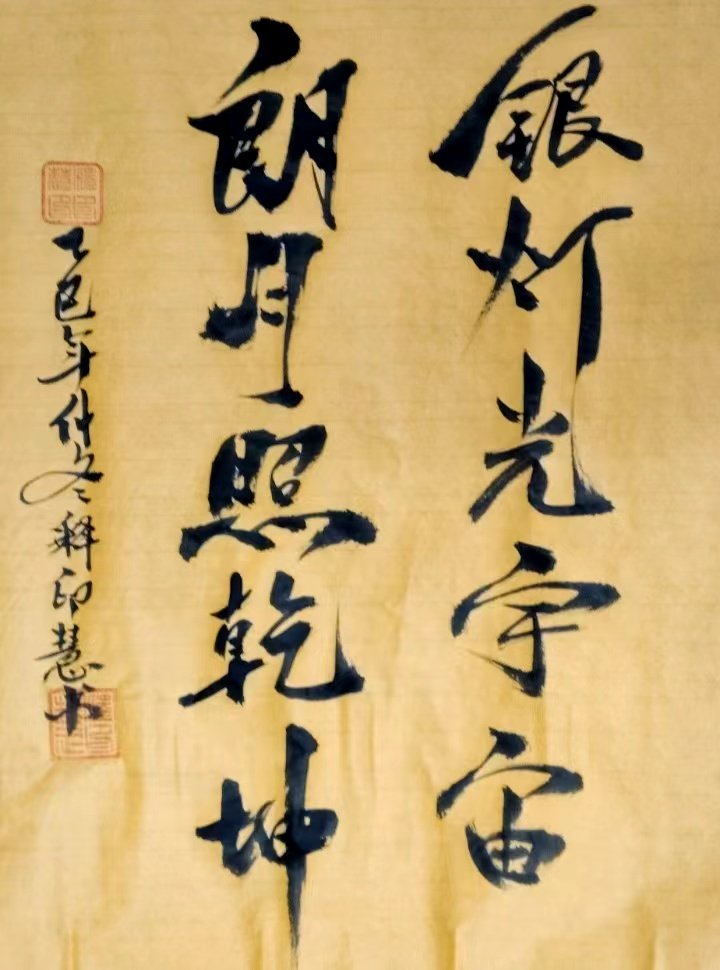 银灯光宇宙
朗月照乾坤
乙巳年仲冬释印慧书